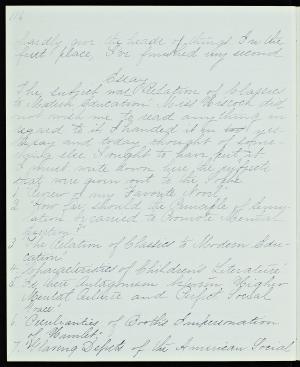 116
hardly give the heads of things. In the
first place, I've finished my second
Essay
The subject was "Relation of Classics
to Modern Education" Miss Hiscock did
not wish me to read anything in
regard to it. I handed it in too yes-
terday and today thought of some-
thing else I ought to have put in
I must write down here the subjects
that were given out by the
1. Review of my Favorite Novel
2. "How far should the Principle of Emu-
lation be carried to Promote Mental
3. "The Relation of Classics to Modern Edu-
cation"
4. "Characteristics of Children's Literature"
5. Is there Antagonism between Higher
Mental Culture and Perfect Social
Grace"
6. "Peculiarities of Booth's Impersonation
of Hamlet"
7. "Glaring Defects of the American Social